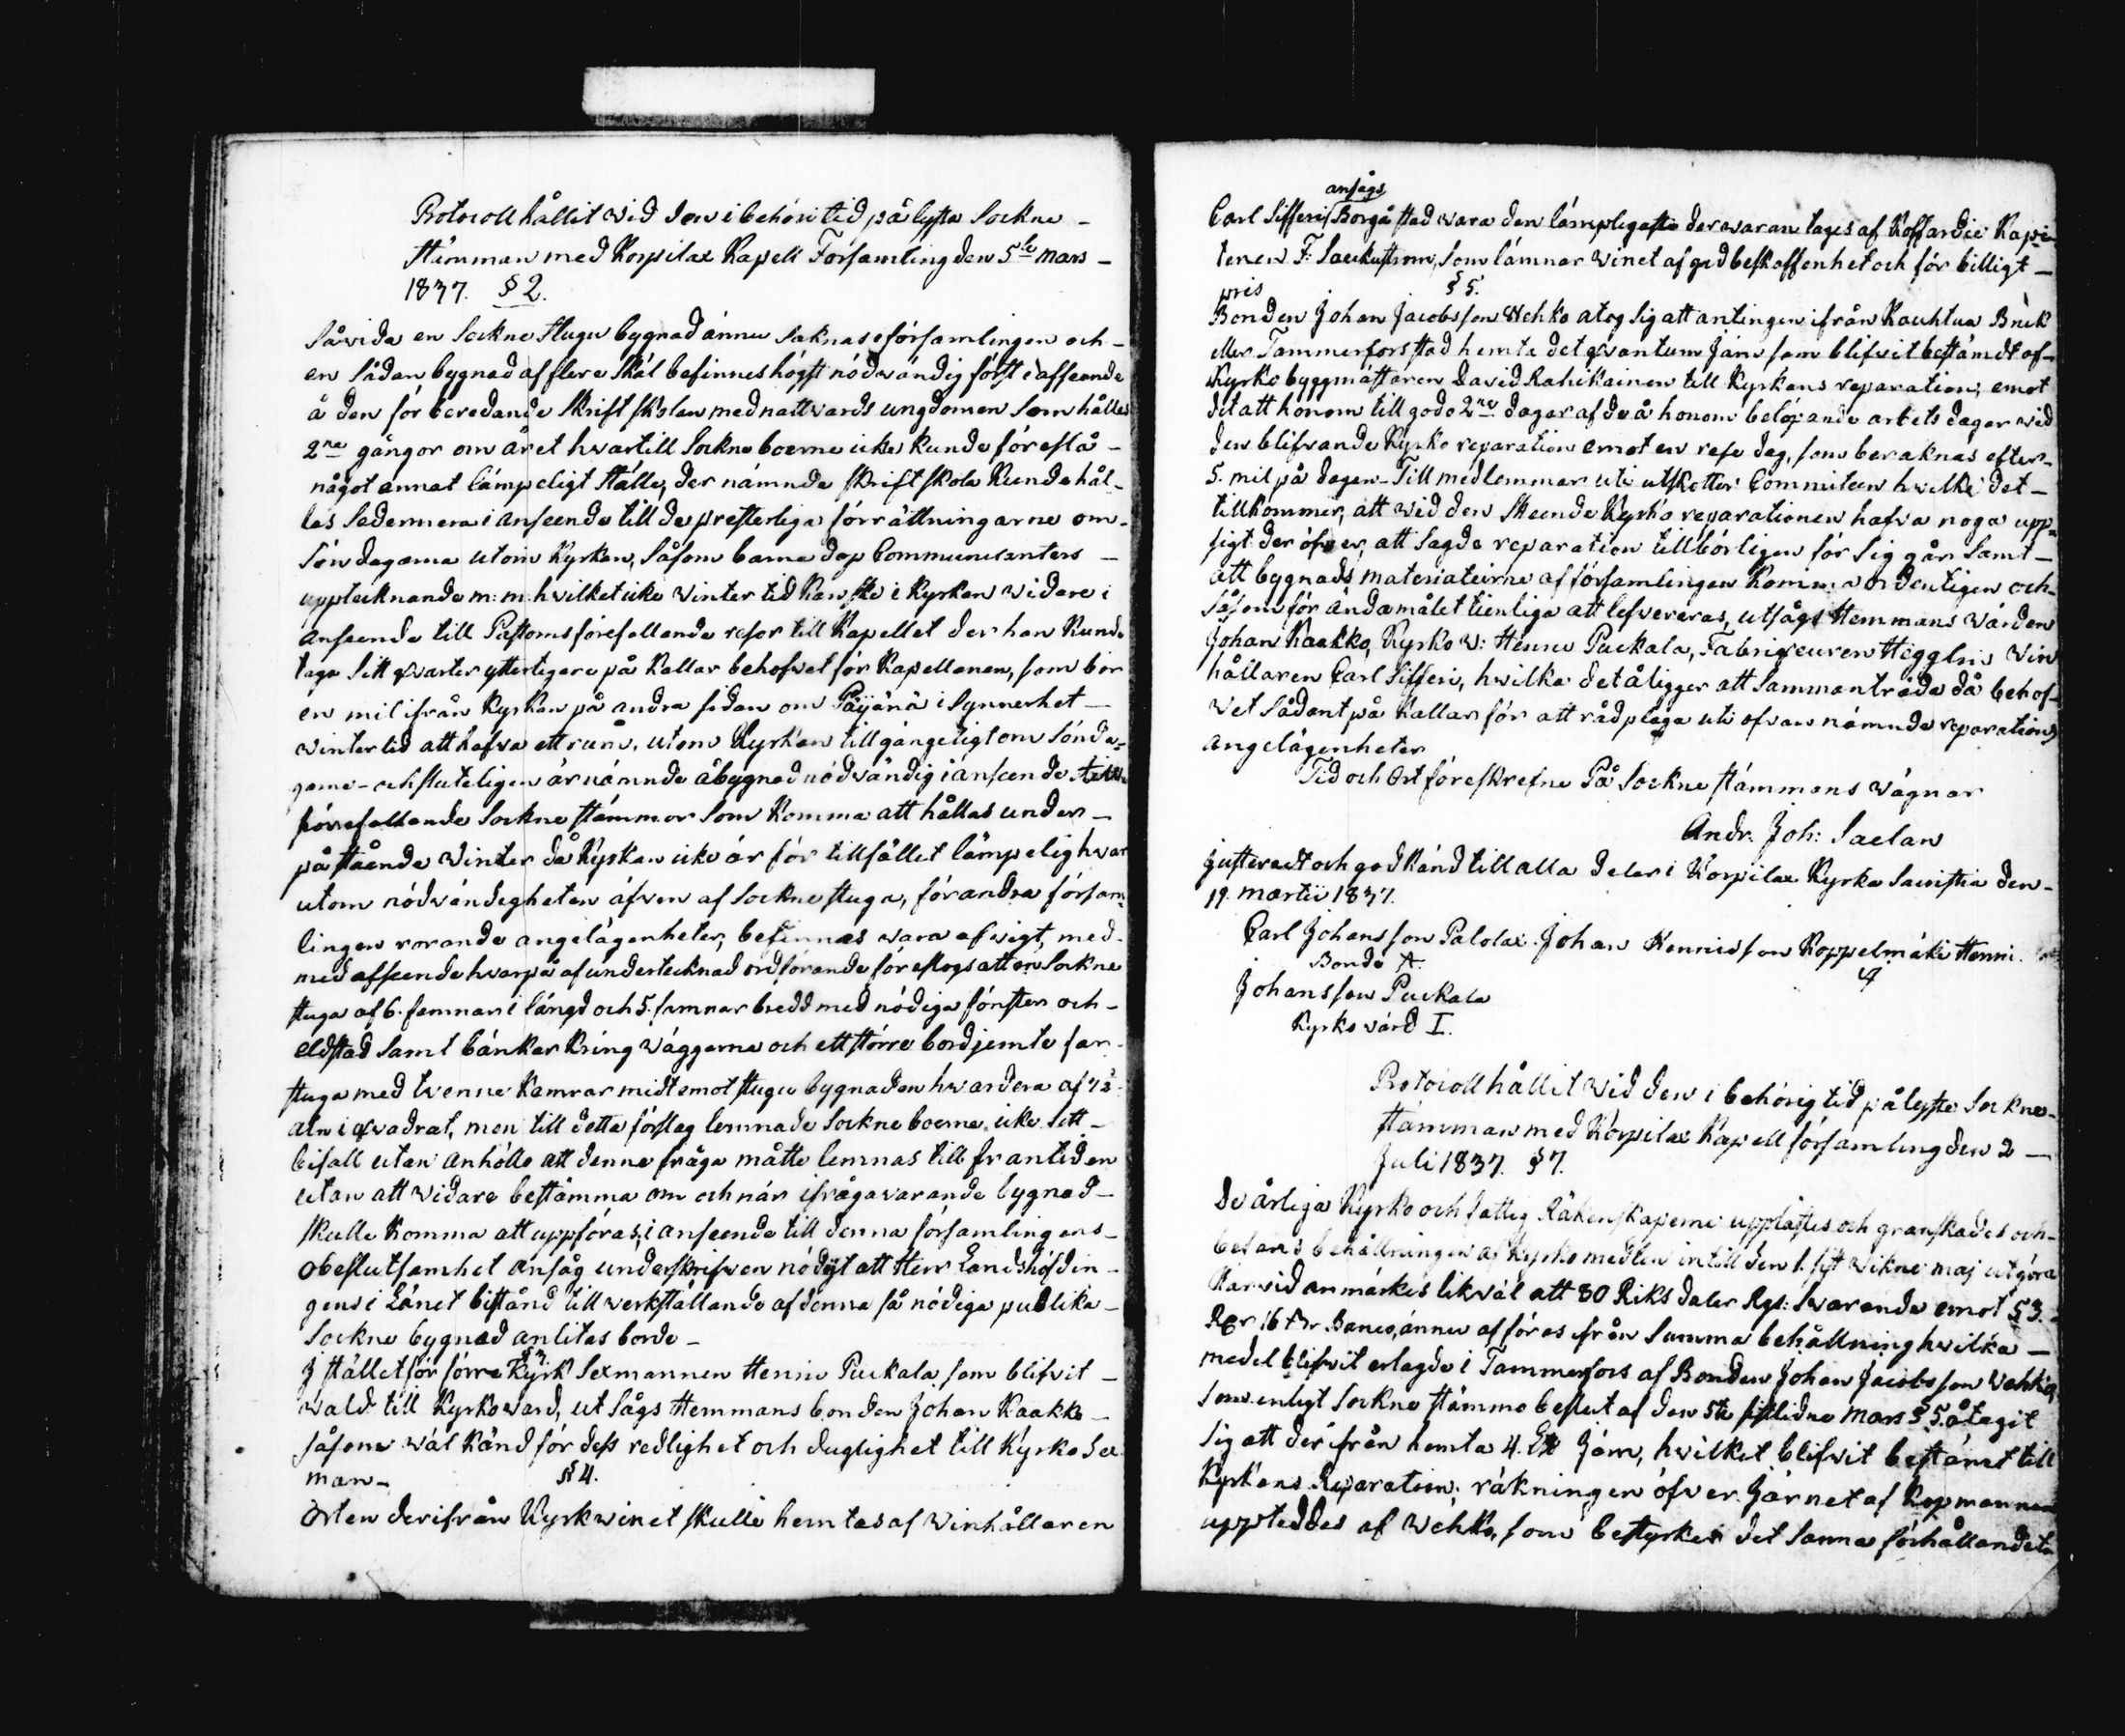 Protocoll hållit wid den i behöri tid på lysta Sockne-
stämman med Korpilax Kapell Församling den 5te Mars-
1837. § 2.
Såvida en Sockne Stugu bygnad ännu saknas i församlingen och-
en sådan bygnad af flere skäl befinnes högst nödvändig först i afseende
å den för beredande Skriftskolan med nattvards ungdomen som hålles
2ne gångor om året hwartill Sockneboerne icke kunde föreslå-
något annat lämpeligt ställe, der nämnde skriftskola kunde hål-
las sedermera i anseende till de presterliga förrättningarne om-
Söndagarna utom Kyrkan, såsom barna dop Communicanters-
upptecknande m: m: hvilket icke Winter tid kan ske i Kyrkan widare i
anseende till Pastorns förefallande resor till Kapellet der han kunde
taga sitt qvarter ytterligare på kallar behofvet för Kapellanen, som bor
en mil ifrån Kyrkan på andra sidan om Päijänä i synnerhet-
winter tid att hafva ett rum, utom Kyrkan tillgängeligt om Sönda-
garne- och sluteligen är nämnde åbygnad nödvändig i anseende till
förrefallande Sockne stämmor som komma att hållas under-
påstående Winter då Kyrkan icke är för tillfället lämpelig hvar
utom nödvändigheten äfven af Sockne stuga, för andra försam-
lingen rorande angelägenheter, befinnas vara af wigt, med-
med afseende hvarpå af undertecknad ordförande föreslogs att en Sockne
stuga af 6. famnar i längd och 5. famnar bredd med nödiga fönster och-
eldstad samt bänkar kring väggarna och ett större bord jemte far-
stuga med tvenne Kamrar midt emot stugu bygnaden hwardera af 7½
aln i qvadrat, men till detta förslag lemnade Sockneboerne icke sitt-
bifall utan anhöllo att denna fråga måtte lemnas till framtiden
utan att widare bestämma om och när ifrågavarande bygnad-
skulle komma att uppföras, i anseende till denna församlingens-
obeslutsamhet ansåg underskrifven nödigt att Herr Landshöfdin-
gens i Länet bistånd till werkställande af denna så nödiga publika-
Sockne bygnad anlitas borde-
§ 3.
I stället för förre Kyrk Sexmannen Henric Puckala som blifvit-
wald till Kyrkoward, utsågs Hemmans bonden Johan Kaakko-
såsom wäl känd för dess redlighet och duglighet till Kyrko Sex
man- § 4.
Orten derifrån Kyrkwinet skulle hemtas af Winhållaren
ansågs
Carl Sifferi Borgå stad wara den lämpligaste der waran tages af Koffardie Kapi-
tenen F: , som lämnar winet af god beskaffenhet och för billigt-
pris § 5.
Bonden Johan Jacobsson Wehko åtog sig att antingen ifrån Kauhtua Bruk
eller Tammerfors stad hemta det qvantum Järn som blifvit bestämdt af-
Kyrko byggmästaren David Rahikainen till Kyrkans reparation, emot
det att honom till godo 2ne dagar af de å honom belöpande arbets dagar wid
den blifvande Kyrko reparation emot en rese dag, som beraknas efter-
5. mil på dagen- Till medlemmar uti utskotter Committeen hvilke det-
tillkommer, att wid den skeende Kyrko reparationen hafva noga upp-
sigt der öfver, att sagde reparation tillbörligen för sig går samt-
att bygnads materialierne af församlingen komma ordentligen och-
såsom för ändamålet tienliga att lefvereras, utsågs Hemmans värden
Johan Kaakko, Kyrko w: Hennu Puckala, Fabriqeuren Höggbris Win
hållaren Carl Sifferi, hwilka det åligger att sammanträda då behof-
wet sådant på kallar för att rådplaga uti ofvan nämnda reparations
angelägenheter
Tid och Ort föreskrefne På Sockne stämmans vägnar
Andr. Joh: Saelan
Justeradt och godkänd till alla delar i Korpilax Kyrka Sacristia den-
19. Martii 1837.
Carl Johansson Palolax. Johan Hennicsson Koppelmäki Henric
Bonde A.
Johansson Puckala
Kyrko värd I.
Protocoll hållit wid den i behörig tid pålyste Sockne-
stämman med Korpilax Kapell församling den 2-
Juli 1837. § 7.
De årliga Kyrko och Fattig Räkenskaperne upplästes och granskades och-
befans behållningen af Kyrko medlen intill den 1. sist wikne maj utgöra
Harvid anmärkes likväl att 80 Riks daler Rgs: Swarande emot 53.
Rbr 16 Banco, ännu afföras från Summa behållning hwilka-
medel blifvit erlagde i Tammerfors af Bonden Johan Jacobsson Wehko,
som enligt Sockne stämmo beslut af den 5te sistlidne Mars § 5. åtagit
sig att derifrån hemta 4. Järn, hwilket blifvit bestämt till
Kyrkans Reparation; räkningen öfver Järnet af Kopmannen
uppteddes af Wehko, som bestyrker det sanna förhållandet